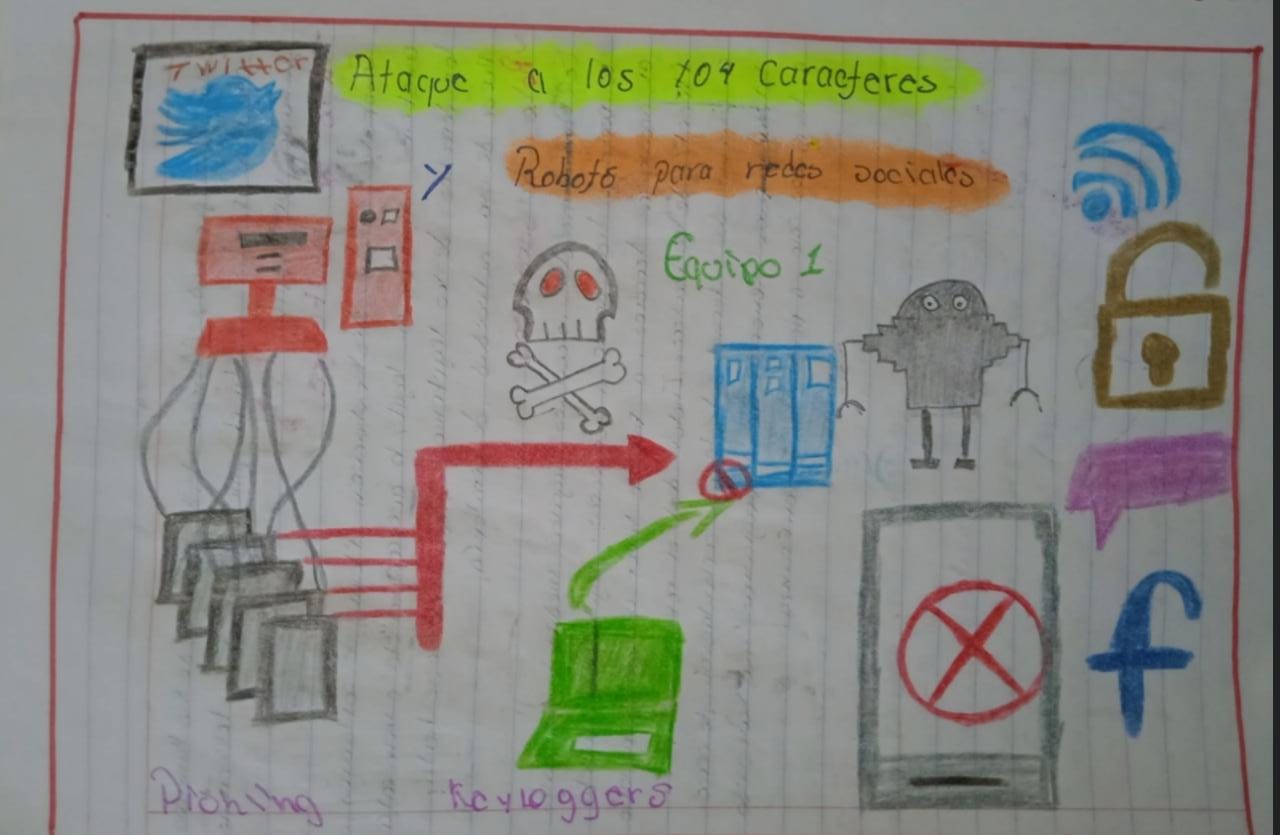 Twitter
Ataque a los 104 Caracteres
y Robots para redes sociales
Equipo 1
Pishing Keyloggers